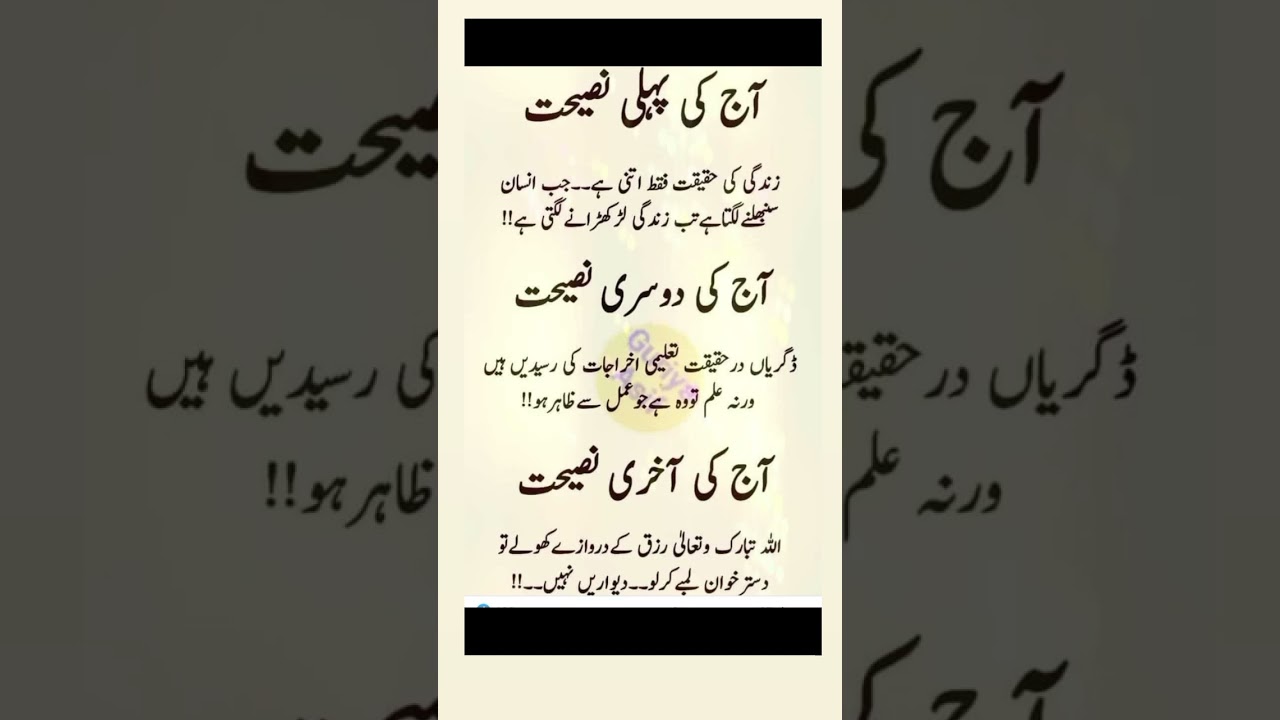 آج کی پہلی نصیحت
زندگی کی حقیقت فقط اتنی ہے۔۔جب انسان
سنبھلنے لگتا ہے تب زندگی لڑکھڑانے لگتی ہے!!
آج کی دوسری نصیحت
ڈگریاں در حقیقت تعلیمی اخراجات کی رسیدیں ہیں
ورنہ علم تو وہ ہے جو عمل سے ظاہر ہو!!
آج کی آخری نصیحت
اللہ تبارک وتعالیٰ رزق کے دروازے کھولے تو
دستر خوان لمبے کر لو۔۔دیواریں نہیں۔۔!!